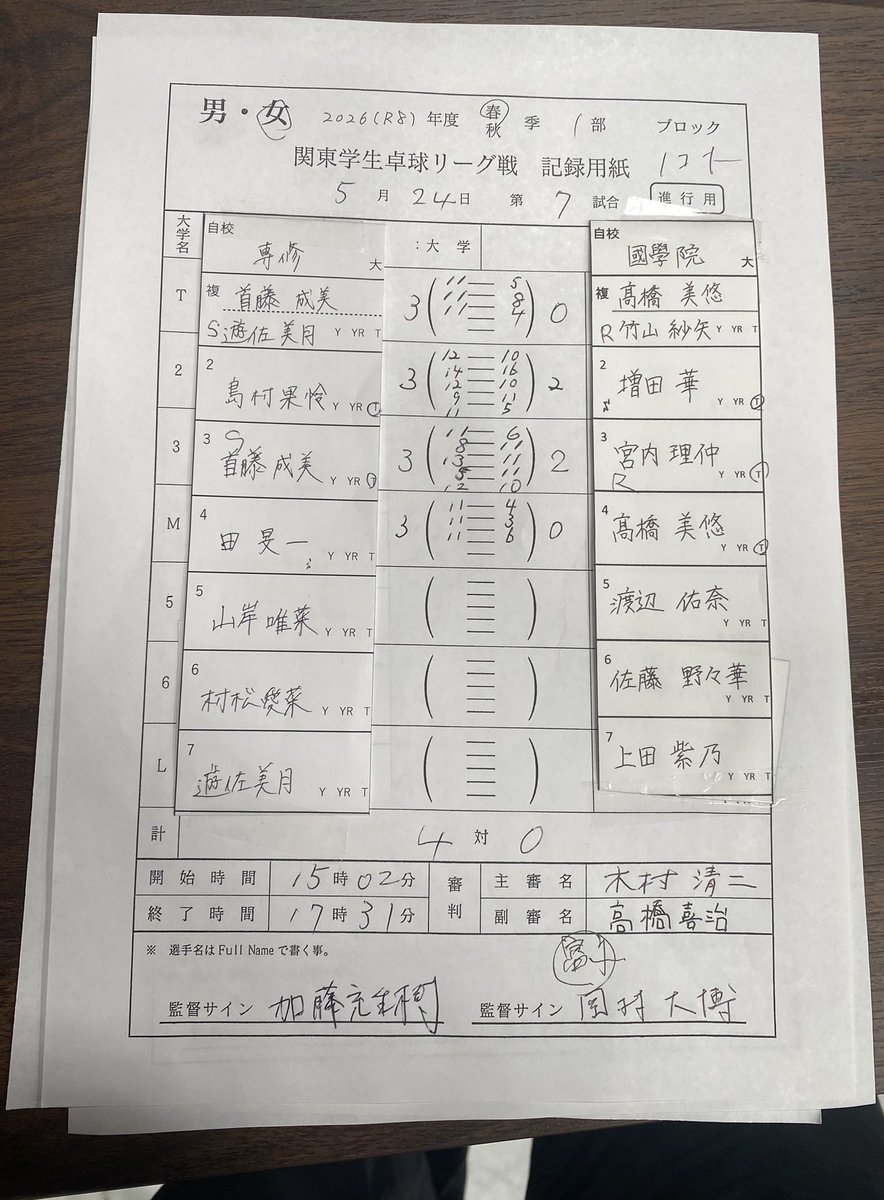 男・女 2026(R8)年度 春秋 季 1部 ブロック
関東学生卓球リーグ戦 記録用紙 1コート
5月24日 第7試合 進行用
大学名 自校 専修 大 :大学 自校 國學院 大
T 複 首藤 成美 3 ( 11 5 ) 0 複 髙橋 美悠
S 遊佐美月 Y YR T 11 8 R 竹山 紗矢 Y YR T
11 4
2 2 島村果怜 Y YR T 3 ( 12 10 ) 2 2 増田 華 Y YR T
14 16
12 10
9 11
11 5
3 3 首藤 成美 Y YR T 3 ( 11 6 ) 2 3 宮内 理仲 Y YR T
S 8 11 R
13 11
11
12 10
M 4 田 旻一 Y YR T 3 ( 11 4 ) 0 4 髙橋 美悠 Y YR T
11 3
11 6
5 5 山岸 唯菜 Y YR T ( ) 5 渡辺 佑奈 Y YR T
6 6 村松愛菜 Y YR T ( ) 6 佐藤 野々華 Y YR T
L 7 遊佐美月 Y YR T ( ) 7 上田 紫乃 Y YR T
計 4 対 0
開始時間 15時02分 審判 主審名 木村 清二
終了時間 17時31分 副審名 高橋喜治
※ 選手名はFull Nameで書く事。
監督サイン 加藤 監督サイン 岡村 大博